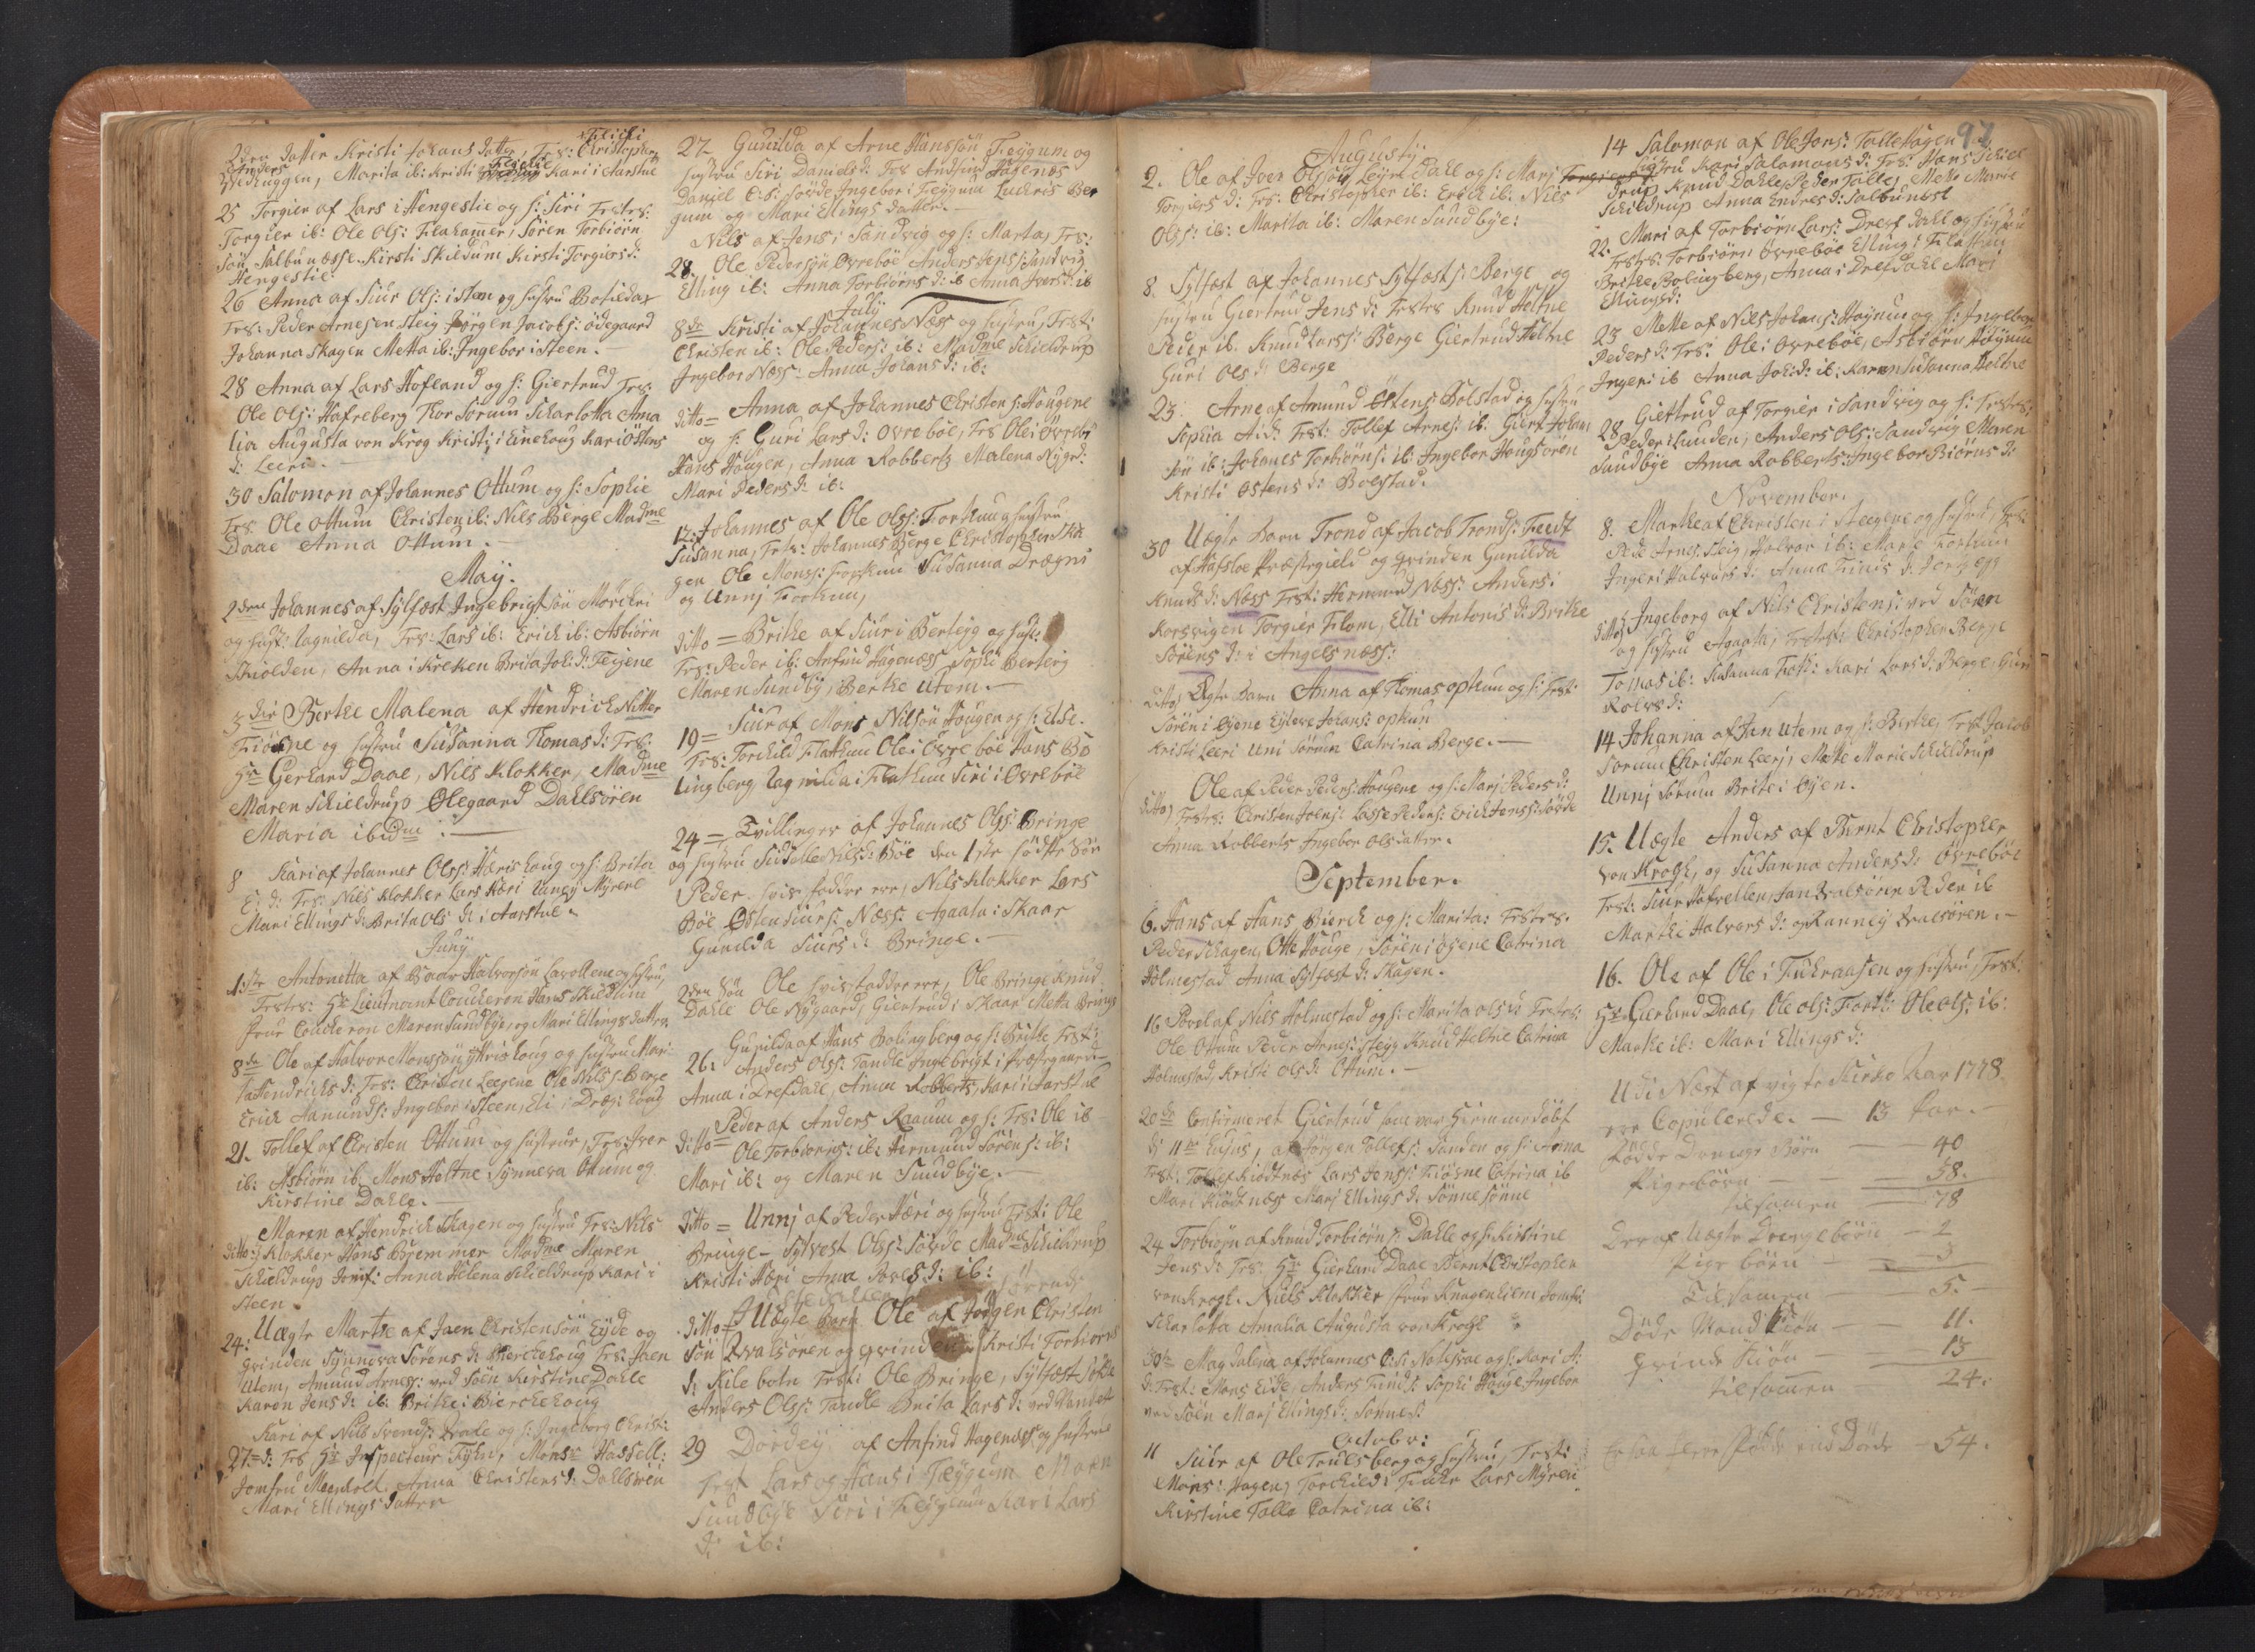 Flichi
2den datter Kristi Johans datter, Frs: Christopher
Anders
Marita ib: Kristi Kari i Aarstue
25 Torgier af Lars i Hengestie og h: Siri Frstrs:
Torgier ib: Ole Ols: Flahamer, Sören Torbiörn
sön Salbunæsse. Kirsti Skildum Kirsti Torgiersd:
Hengestie
26 Anna af Siur Ols: i Steen og hustru Botilda
Frs: Peder Arnesen Steig Jörgen Jacobs: ödegaard
Johanna Skagen Metta ib: Ingebor i Steen.
28 Anna af Lars Hofland og h: Giertrud Frs:
Ole Ols: Hafreberg Thor Sorum Scharlotta Ama
lia Augusta von Krog Kristi i Einehoug Kari Östens
d: Leeri.
30 Salomon af Johannes Ottum og h: Sophie
Frs Ole Ottum Christen ib: Nils Berge Madme
Daae Anna Ottum.
May.
2den Johannes af Sylfæst Ingebrigtsön Mörchri
og hust: Ragnilda, Frs: Lars ib: Erich ib: Asbiörn
Skiolden, Anna i Kreken Brita Joh: d: Feigene
3die Berthe Malena af Hendrich Nitter
Fiöesne og hustru Susanna Thomas d: Frs:
Hr Gerhard Daae, Nils Klokker, Madme
Maren Schieldrup Olegaard Dahlsören
Maria ibidm
8 Kari af Johannes Olss: Harishoug og h: Brita
E: d: Frs: Nils Klokker Lars Kæri Ranny Myrene
Mari Ellings d: Brita Ols d: i Aarstue.
Juny
1ste Antonitta af Baar Halvorsön Lavollene og hustru,
Frstrs: Hr Lieutnant Coucheron Hans Skildum
Frue Coucheron Maren Sundbye, og Mari Ellings datter.
8de Ole af Halvor Monssön Harishoug og hustru Mari
ta Hendrichs d: Frs: Christen Leegene Ole Nils s: Berge
Erick Aamunds: Ingebor i Steen, Eli i Dræge houg
21. Tollef af Christen Ottum og hustrue, Frs: Iver
ib: Asbiörn ib: Mons Holtne Synneva Ottum og
Kirstine Dahle.
Maren af Hendrich Skagen og hustru Frs: Nils
ditto Klokker Hans Bremmer Madme Maren
Schieldrup Jomf: Anna Helena Schieldrup Kari i
Steen.
24: Uægte Marthe af Jaen Christensön Eyde og
qvinden Synneva Sörens d: Bierchehoug Frs: Jaen
Utem, Amund Arnes: ved Söen Kirstine Dahle
Karen Jens d: ib: Brithe i Bierchehoug
Kari af Nils Svends: Kroken og h: Ingeborg Christ:
27= d: Frs Hr Inspecteur Fyhn, Monsr Hassell:
Jomfru Meenholt Anna Christens d: Dahlsören
Mari Ellings datter
27 Gunilda af Arne Hanssön Feygum og
hustru Siri Daniels d: Frs Anfind Hagenæs
Daniel C: S: Sörde Ingebor i Feggum Luchris Ber
gum og Mari Ellings datter.
Nils af Jens i Sandvig og h: Marta, Frs:
28. Ole Pedersön Ovreböe Anders Jens: Sandvig
Elling ib: Anna Torbiörns d: ib Anna Ivers d: ib
July
8de Kristi af Johannes Næss og hustru, Frst:
Christen ib: Ole Peders: ib: Madme Schieldrup
Ingebor Næss: Anna Johans d: ib:
ditto= Anna af Johannes Christens: Hougene
og h: Guri Lars d: Ovreböe, Frs Ole i Övrebö
Hans Hougen, Anna Robberts Malena Nygrd:
Mari Peders d: ib:
12: Johannes af Ole Olss: Forthun og hustru
Susanna, Frts: Johannes Berge Christopher Ska
gen Ole Monss: Forthun Susanna Drægni
og Unni Forthun,
ditto = Brithe af Siur i Berteig og hust:
Frs: Peder ib: Anfind Hagenæss Sophi Berteig
Maren Sundby, Berthe Utem.
19= Siur af Mons Nilssön Hougen og h: Else.
Frs: Torchild Flathum Ole i Övreböe Hans Bo
lingberg Ragnilda i Flathum Siri i Ovreböe
24= Tvillinger af Johannes Olss: Bringe
og hustru Sidselle Nils d: Böe den 1ste födte Sön
Peder, hvis faddre ere, Nils Klokker Lars
Böe Östen Siurs: Næss: Agaata i Skaar
Gunilda Siurs d: Bringe.
2den Sön Ole hvis faddre ere, Ole Bringe Knud
Dahle Ole Nygaard, Giertrud i Skaar Metta Bringe
Gunilda af Hans Bolingberg og h: Brithe Frst:
26: Anders Olss: Tandle Ingebrigt i Præstegaarden
Anna i Drefdahl, Anna Robberts, Kari i Aarstue
Peder af Anders Raaum og h: Frs: Ole ib
ditto= Ole Torbiörns: ib: Hermund Sörens: ib:
Mari ib: og Maren Sundbye.
ditto = Unni af Peder Kæri og hustru Frst: Ole
Bringe – Sylvest Olss: Sörde Madme Schieldrup
Kristi Kæri Anna Povels d: ib:
ditto= Uægte barn Ole af Jörgen Christen
sön Kvalsören og qvinden Kristi Torbiörns
d: Kilebotn Frst: Ole Bringe, Sylfæst Sörde
Anders Olss: Tandle Brita Lars d: ved Vandet
29 Dordey af Anfind Hagenæs og hustrue
Frst Lars og Hans i Feygum Maren
Sundbye Siri i Feggum Kari Lars
d: ib:
Augusty
2. Ole af Joen Olssön Leyrdahl og h: Marj
Torgiers d: Frs: Christopher ib: Erick ib: Nils
Olss: ib: Marita ib: Maren Sundbye:
8. Sylfæst af Johannes Sylfæsts: Berge og
hustru Giertrud Jens d: Frstrs Knud Holtne
Peder ib. Knud Larss: Berge Giertrud Holtne
Guri Ols d: Berge
23. Arne af Amund Östens: Bolstad og hustru
Sophia A: d: Frst: Tollef Arnes: ib: Giert Johan
sön ib: Johanes Torbiörns: ib: Ingebor Hougsören
Kristi Ostens d: Bolstad.
30 Uægte barn Trond af Jacob Tronds: Feedt
af Hafsloe Præstegield og qvinden Gunilda
Knuds d: Næss Frst: Hermund Næss: Anders:
Korsvigen Torgier Flom, Elli Antonis d: Brithe
Sörens d: i Angelsnæss:
ditto Ægte barn Anna af Thomas opthun og h: Frst:
Sören i Öyene Eyleve Johans: opthun
Kristi Leeri Uni Sörum Catrina Berge.
Ole af Peder Peders: Hougene og h: Marj Peders d:
ditto Frstrs: Christen Joens: Lasse Peders: Erick Jenss: Sörde
Anna Robberts Ingebor Olsdatter.
September.
6. Hans af Hans Bierch og h: Marita: Frstrs.
Peder Schagen, Otte Houge, Sören i öyene Catrina
Holmestad Anna Sylfæst d: Skagen.
16 Povel af Nils Holmestad og h: Marita Ols d: Frstrs:
Ole Ottum Peder Arnes: Steig Knud Holtne Catrina
Holmestad, Kristi Ols d: Ottum.
20de Confirmeret Giertrud som var hiemmedöbt
d: 11te hujus, af Jörgen Tollefs: Sanden og h: Anna
Frst: Tollef Kiödtnæs Lars Jenss: Fiösne Catrina ib
Mari Kiödtnæs Marj Ellings d: Sönnesönne
24 Torbiörn af Knud Torbiörns: Dahle og h: Kirstine
Jens d: Frs: Hr Gierhard Daae Bernt Christopher
von Krogh. Niels Klokker Frue Knagenhielm Jomfr:
Scharlotta Amalia Augusta von Krogh
30te Magdalena af Johannes C: S: Notisvae og h: Kari A:
d: Frst: Mons Eide, Anders Finds: Sophi Houge Ingebor
ved Söen Marj Ellings d: Sönnes:
Octobr:
11 Siur af Ole Trulsberg og hustru, Frst:
Mons: Hagen, Torchild: Fuhr Lars Myren
Kirstine Talle Catrina ib:
97
14 Salomon af Ole Jons: Tallehagen
hustru Kari Salomons d: Frs: Hans Schiel
drup Knud Dahle, Peder Talle, Mette Marie
Schieldrup Anna Endres d: Salbunæst
22. Mari af Torbiörn Lars: Drefdahl og hustru
Frstrs: Torbiörn Övreböe Elling: Flathen
Brithe Bolingberg, Anna i Drefdahl Mari
Ellingsd:
23 Mette af Nils Johans: Höynum og h: Ingebor
Peders d: Frs: Ole i Ovreböe, Asbiörn Höynum
Ingeri ib Anna Joh: d: ib: Karen Susanna Holtne
28. Giertrud af Torgier i Sandvig og h: Frstrs:
Peder i Lunden, Anders Ols: Sandvig Maren
Sundbye Anna Robberts: Ingebor Biörns d:
November.
8. Marthe af Christen i Steegene og hustru, Frst:
Peder Arnes: Steig, Halvor ib: Marthe Forthun
Ingeri Halvors d: Anna
ditto Ingeborg af Nils Christens: ved Sören
og hustru Agaata, Frstrs: Christopher Berge
Tomas ib: Susanna Kari Lars d: Berge, Guri
Rolvs d:
14 Johanna af Jan Utem og h: Berthe, Frst Jacob
Sorum Christen Leeri, Mette Marie Schieldrup
Unni Sörum Brite i Öyen.
15. Uægte Anders af Bernt Christopher
von Krogh, og Susanna Anders d: Övreböe
Frst: Siur Hafrellen, Jan Kvalsören Peder ib
Marthe Halvors d: og Ranneig Kvalsören.
16. Ole af Ole i Fuhraasen og hustru, Frst.
Hr Gierhard Daae, Ole Ols: Forth: Ole Ols: ib:
Marthe ib: Mari Ellings d:
Udi Næst afvigte Kirke Aar 1778
ere Copulerede. — 13 Par.
födde Drenge Börn — 40
Pigebörn — 38.
tilsamen — 78
Deraf Uægte Drengebörn – 2
Pige börn — 3
Tilsamen — 5.
Döde Mand Kiön — 11.
Qvinde Kiön — 13
tilsammen — 24.
Er saa flere födde end Döde — 54.